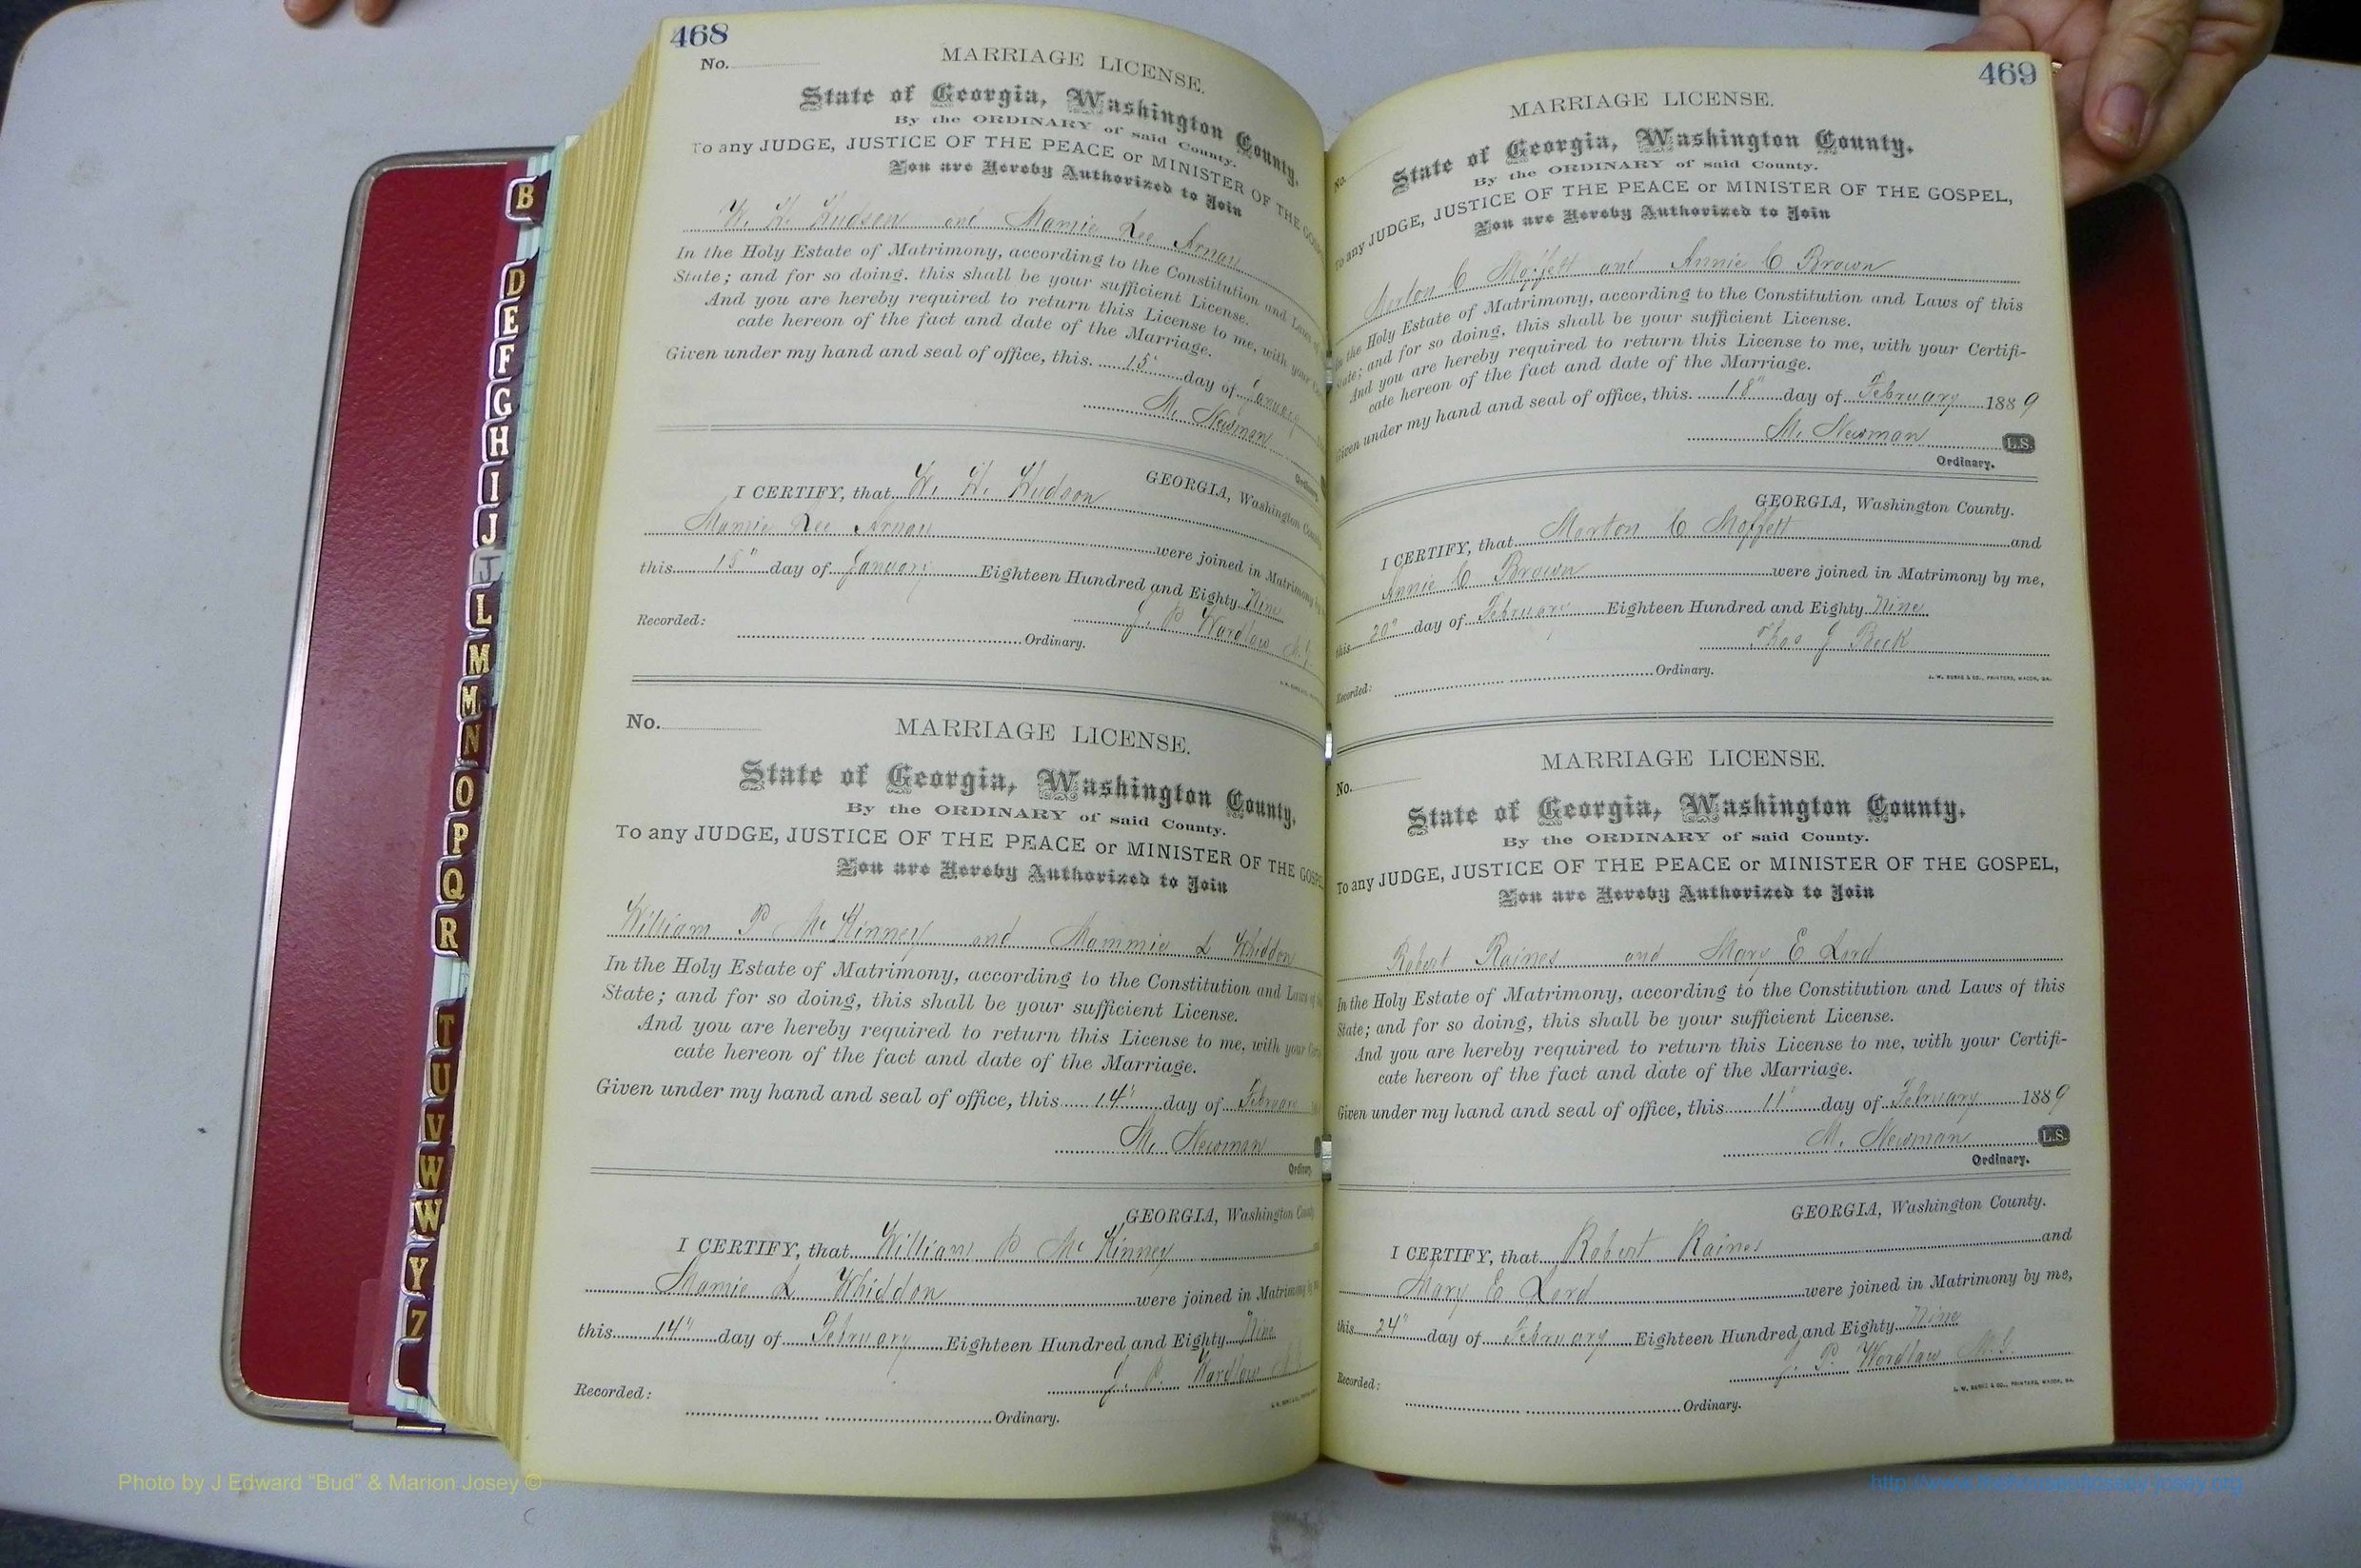 468
No.
MARRIAGE LICENSE.
State of Georgia, Washington County.
By the ORDINARY of said County.
To any JUDGE, JUSTICE OF THE PEACE or MINISTER OF THE GO
You are Hereby Authorized to Join
W. H. Hudson and Mamie Lee Arnau
In the Holy Estate of Matrimony, according to the Constitution and Laws of
State; and for so doing. this shall be your sufficient License.
And you are hereby required to return this License to me, with your
cate hereon of the fact and date of the Marriage.
Given under my hand and seal of office, this 15" day of January
M. Newman
Ordinary.
GEORGIA, Washington County
I CERTIFY, that W. H. Hudson
Mamie Lee Arnau were joined in Matrimony
this 15" day of January Eighteen Hundred and Eighty Nine
J. P. Wardlaw M.G.
Recorded: Ordinary.
No.
MARRIAGE LICENSE.
State of Georgia, Washington County.
By the ORDINARY of said County.
To any JUDGE, JUSTICE OF THE PEACE or MINISTER OF THE GOSPE
You are Hereby Authorized to Join
William P McKinney and Mammie L Whiddon
In the Holy Estate of Matrimony, according to the Constitution and Laws of
State; and for so doing, this shall be your sufficient License.
And you are hereby required to return this License to me, with your
cate hereon of the fact and date of the Marriage.
Given under my hand and seal of office, this 14" day of February
M. Newman
Ordinary
GEORGIA, Washington County
I CERTIFY, that William P McKinney
Mamie L Whiddon were joined in Matrimony
this 14" day of February Eighteen Hundred and Eighty Nine
J. P. Wardlaw
Recorded: Ordinary.
469
MARRIAGE LICENSE.
No.
State of Georgia, Washington County.
By the ORDINARY of said County.
To any JUDGE, JUSTICE OF THE PEACE or MINISTER OF THE GOSPEL,
You are Hereby Authorized to Join
Morton C Moffett and Annie C Brown
In the Holy Estate of Matrimony, according to the Constitution and Laws of this
State; and for so doing, this shall be your sufficient License.
And you are hereby required to return this License to me, with your Certifi-
cate hereon of the fact and date of the Marriage.
Given under my hand and seal of office, this 18" day of February 1889
M. Newman L.S.
Ordinary.
GEORGIA, Washington County.
I CERTIFY, that Morton C Moffett and
Annie C Brown were joined in Matrimony by me,
this 20" day of February Eighteen Hundred and Eighty Nine
Thos J Beck
Recorded: Ordinary.
J. W. BURKE & CO., PRINTERS, MACON, GA.
MARRIAGE LICENSE.
No.
State of Georgia, Washington County.
By the ORDINARY of said County.
To any JUDGE, JUSTICE OF THE PEACE or MINISTER OF THE GOSPEL,
You are Hereby Authorized to Join
Robert Raines and Mary E Lord
In the Holy Estate of Matrimony, according to the Constitution and Laws of this
State; and for so doing, this shall be your sufficient License.
And you are hereby required to return this License to me, with your Certifi-
cate hereon of the fact and date of the Marriage.
Given under my hand and seal of office, this 11" day of February 1889
M. Newman L.S.
Ordinary.
GEORGIA, Washington County.
I CERTIFY, that Robert Raines and
Mary E Lord were joined in Matrimony by me,
this 24" day of February Eighteen Hundred and Eighty Nine
J. P. Wardlaw M.G.
Recorded: Ordinary.
J. W. BURKE & CO., PRINTERS, MACON, GA.
B
D
E
F
G
H
I
J
J
L
M
M
N
O
P
Q
R
T
U
V
W
W
Y
Z
Photo by J Edward “Bud” & Marion Josey ©